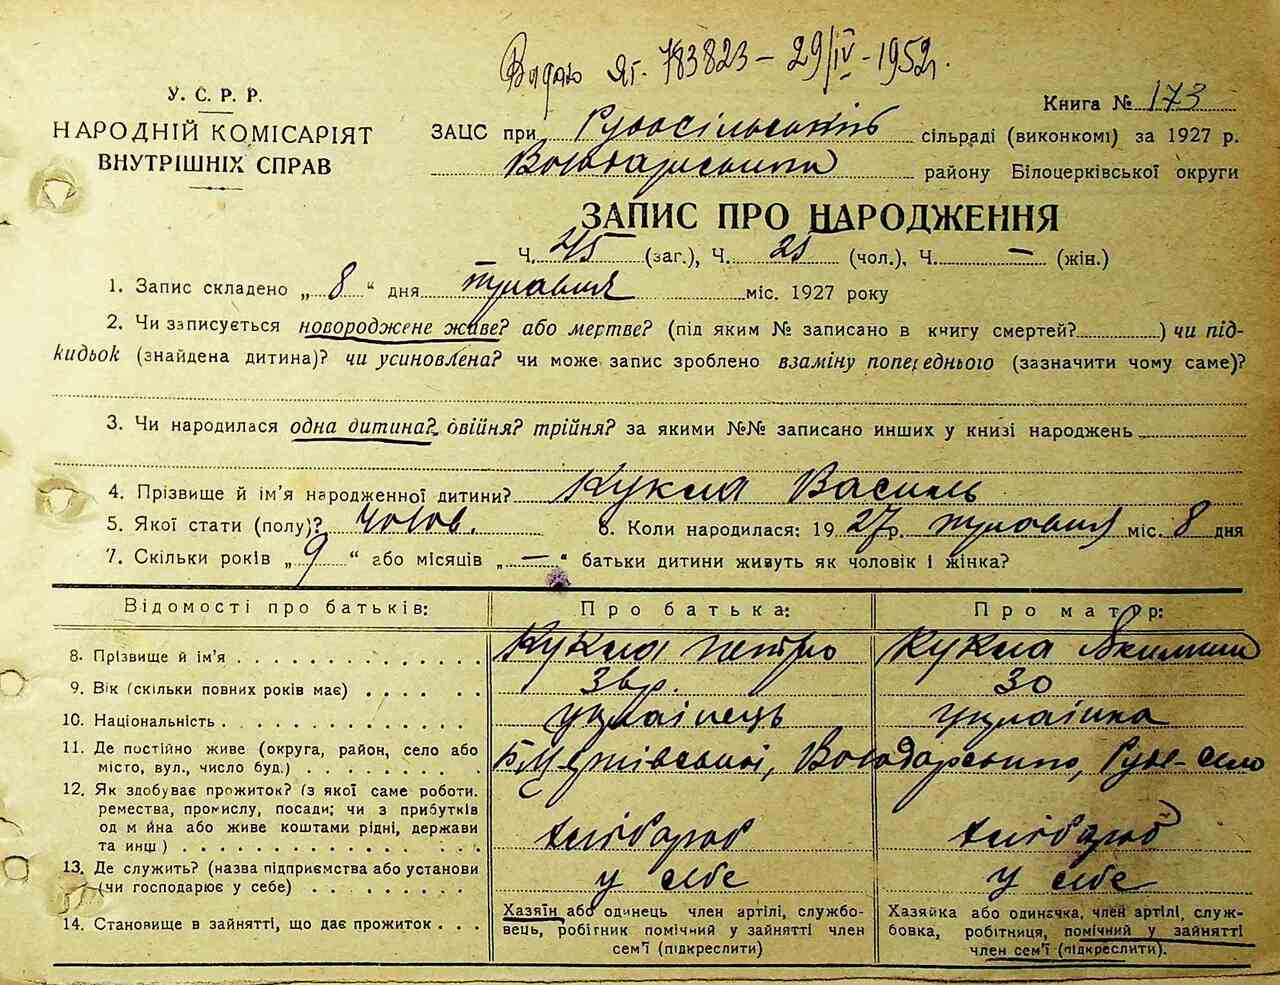 Видано ЯГ. 783823 – 29/IV - 1952 г.
У. С. Р. Р.
НАРОДНІЙ КОМІСАРІЯТ
ВНУТРІШНІХ СПРАВ
Книга № 173
ЗАЦС при Рудосільський сільраді (виконкомі) за 1927 р.
Володарського району Білоцерківської округи
ЗАПИС ПРО НАРОДЖЕННЯ
Ч. 45 (заг.), Ч. 25 (чол.), Ч. – (жін.)
1. Запис складено „ 8 “ дня травня міс. 1927 року
2. Чи записується новороджене живе? або мертве? (під яким № записано в книгу смертей? ) чи під-
кидьок (знайдена дитина)? чи усиновлена? чи може запис зроблено взаміну попереднього (зазначити чому саме)?
3. Чи народилася одна дитина? двійня? трійня? за якими №№ записано инших у книзі народжень
4. Прізвище й ім'я народженної дитини? Кукса Василь
5. Якої стати (полу)? чолов. 6. Коли народилася: 1927 р. травня міс. 8 дня
7. Скільки років „ 9 “ або місяців „ – “ батьки дитини живуть як чоловік і жінка?
Відомості про батьків: Про батька: Про матір:
8. Прізвище й ім'я Кукса Петро Кукса
9. Вік (скільки повних років має) 30
10. Національність українець українка
11. Де постійно живе (округа, район, село або
місто, вул., число буд.) Володарського, Руде-село
12. Як здобуває прожиток? (з якої саме роботи.
ремества, промислу, посади; чи з прибутків
од м йна або живе коштами рідні, держави
та инш) хлібороб хлібороб
13. Де служить? (назва підприємства або установи
(чи господарює у себе) у себе у себе
14. Становище в зайнятті, що дає прожиток
Хазяїн або одинець член артілі, службо-
вець, робітник помічний у зайнятті член
сем'ї (підкреслити)
Хазяйка або одиначка, член артілі, служ-
бовка, робітниця, помічний у зайнятті
член сем'ї (підкреслити).